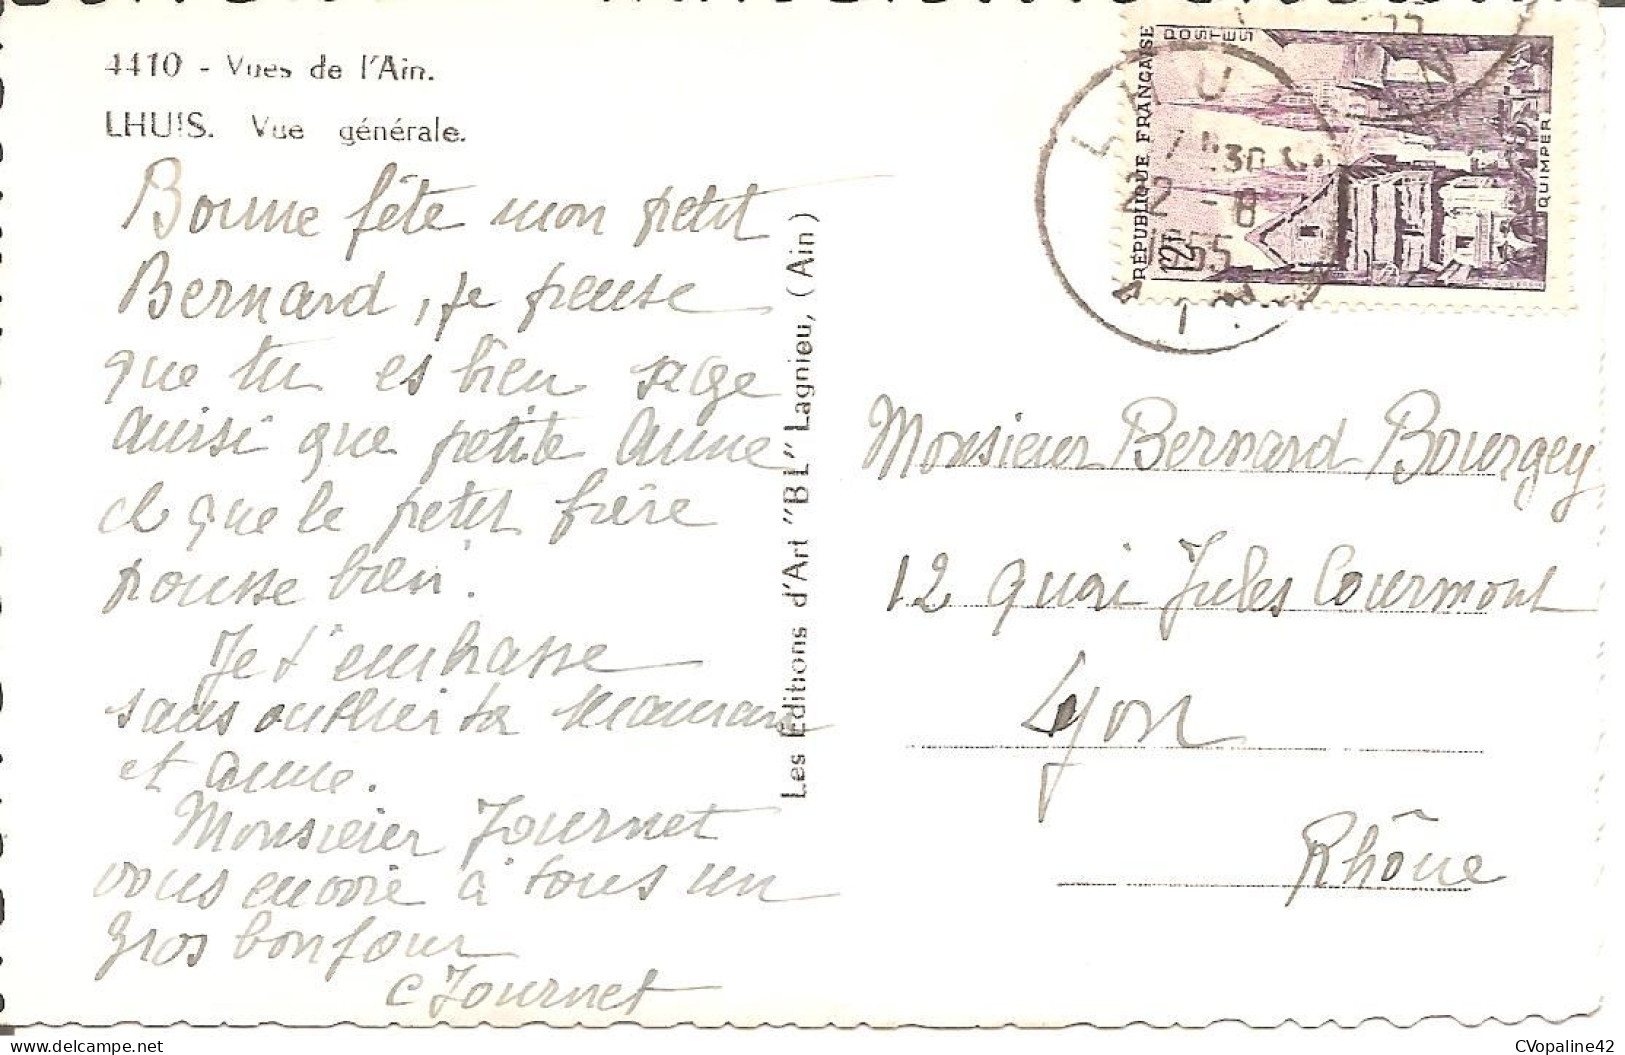 4410 - Vues de l'Ain.
LHUIS. Vue générale.
Bonne fête mon petit
Bernard, je pense
que tu es bien sage
aussi que petite Anne
et que le petit frère
pousse bien.
Je t'embrasse
sans oublier ta maman
et Anne.
Monsieur Journet
vous envoie à tous un
gros bonjour
C Journet
Les Editions d'Art "BL" Lagnieu, (Ain)
RÉPUBLIQUE FRANÇAISE
POSTES
12F
QUIMPER
LHUIS
22 - 8
1955
AIN
Monsieur Bernard Bourgey
12 quai Jules Courmont
Lyon
Rhône
CVopaline42